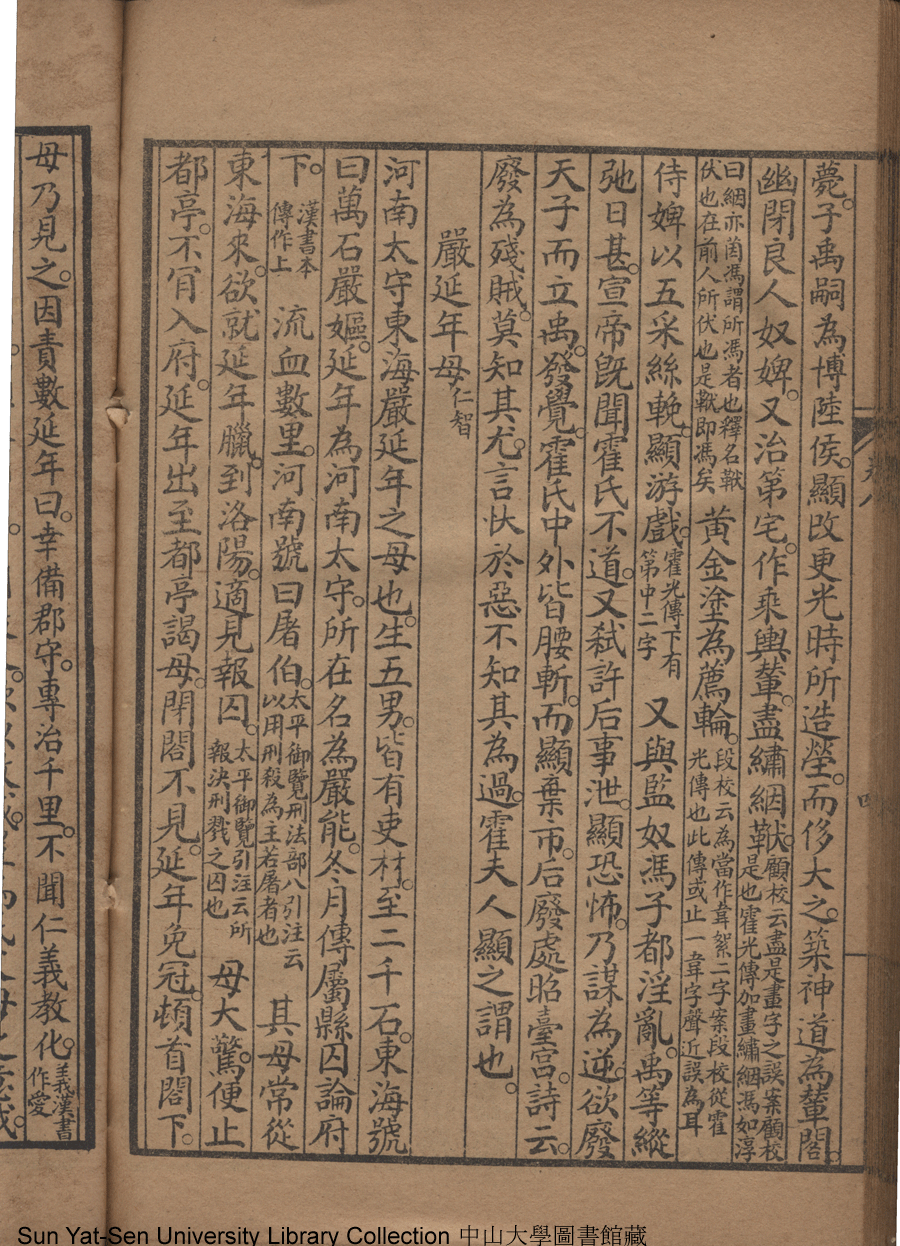 薨。子禹嗣為博陸侯。顯改更光時所造塋。而侈大之。築神道為輦閣。
幽閉良人奴婢。又治第宅。作乘輿輦。盡繡絪鞅。顧校云盡是畫字之誤案顧校是也霍光傳加畫繡絪馮如淳
曰絪亦茵馮謂所馮者也釋名鞅伏也在前人所伏也是鞅即馮矣 黃金塗為薦輪。段校云為當作韋絮二字案段校從霍光傳也此傳或止一韋字聲近誤為耳
侍婢以五采絲輓。顯游戲。霍光傳下有第中二字 又與監奴馮子都淫亂。禹等縱
弛日甚。宣帝既聞霍氏不道。又弒許后事泄。顯恐怖。乃謀為逆。欲廢
天子而立禹。發覺。霍氏中外皆腰斬。而顯棄市。后廢處昭臺宮。詩云。
廢為殘賊。莫知其尤。言忕於惡不知其為過。霍夫人顯之謂也。
嚴延年母仁智
河南太守東海嚴延年之母也。生五男。皆有吏材。至二千石。東海號
曰萬石嚴嫗。延年為河南太守。所在名為嚴能。冬月傳屬縣囚論府
下。漢書本傳作上 流血數里。河南號曰屠伯。太平御覽刑法部八引注云以用刑殺為主若屠者也 其母常從
東海來。欲就延年臘。到洛陽。適見報囚。太平御覽引注云所報決刑戮之囚也 母大驚。便止
都亭。不肎入府。延年出至都亭謁母。閉閣不見。延年免冠。頓首閤下。
母乃見之。因責數延年曰。幸備郡守。專治千里。不聞仁義教化。義漢書作愛
卷八
四
Sun Yat-Sen University Library Collection 中山大學圖書館藏